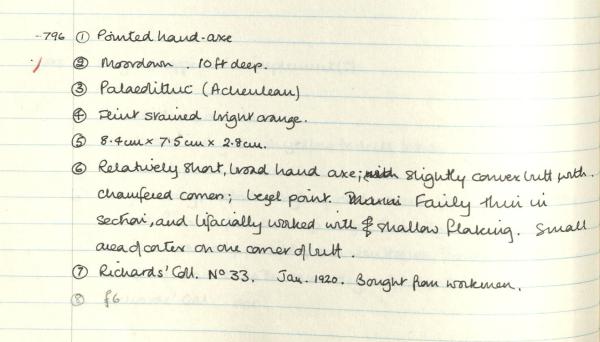 -796 ① Pointed hand-axe
② Moordown. 10ft deep.
③ Palaeolithic (Acheulean)
④ Flint stained bright orange.
⑤ 8.4cm x 7.5cm x 2.8cm.
⑥ Relatively short, broad hand axe; with slightly convex butt with
chamfered corner; bevel point. Fairly thin in
section, and bifacially worked with shallow flaking. Small
area of cortex on one corner of butt.
⑦ Richards' Coll. No 33. Jan. 1920. Bought from workmen.
⑧ £6